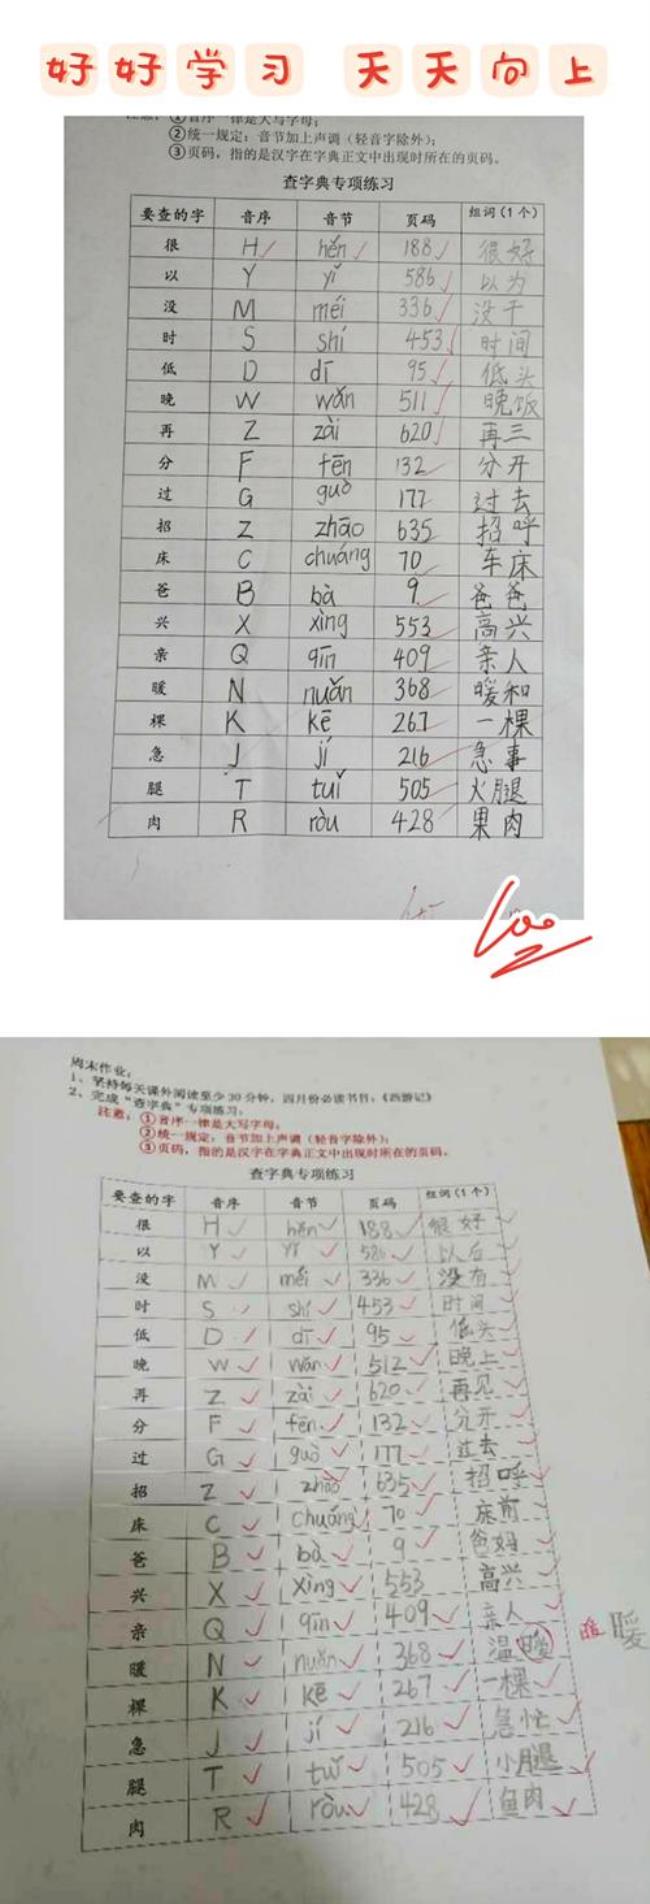 好好学习 天天向上
注意：①音序一律是大写字母；
②统一规定：音节加上声调（轻音字除外）；
③页码，指的是汉字在字典正文中出现时所在的页码。
查字典专项练习
要查的字 音序 音节 页码 组词（1个）
很 H hěn 188 很好
以 Y yǐ 586 以为
没 M méi 336 没干
时 S shí 453 时间
低 D dī 95 低头
晚 W wǎn 511 晚饭
再 Z zài 620 再三
分 F fēn 132 分开
过 G guò 177 过去
招 Z zhāo 635 招呼
床 C chuáng 70 车床
爸 B bà 9 爸爸
兴 X xìng 553 高兴
亲 Q qīn 409 亲人
暖 N nuǎn 368 暖和
棵 K kē 267 一棵
急 J jí 216 急事
腿 T tuǐ 505 火腿
肉 R ròu 428 果肉
100
周末作业：
1、坚持每天课外阅读至少30分钟，四月份必读书目：《西游记》
2、完成“查字典”专项练习。
注意：①音序一律是大写字母；
②统一规定：音节加上声调（轻音字除外）；
③页码，指的是汉字在字典正文中出现时所在的页码。
查字典专项练习
要查的字 音序 音节 页码 组词（1个）
很 H hěn 188 很好
以 Y yǐ 586 以后
没 M méi 336 没有
时 S shí 453 时间
低 D dī 95 低头
晚 W wǎn 512 晚上
再 Z zài 620 再见
分 F fēn 132 分开
过 G guò 177 过去
招 Z zhāo 635 招呼
床 C chuáng 70 床前
爸 B bà 9 爸妈
兴 X xìng 553 高兴
亲 Q qīn 409 亲人
暖 N nuǎn 368 温暖 暖
棵 K kē 267 一棵
急 J jí 216 急忙
腿 T tuǐ 505 小腿
肉 R ròu 428 鱼肉